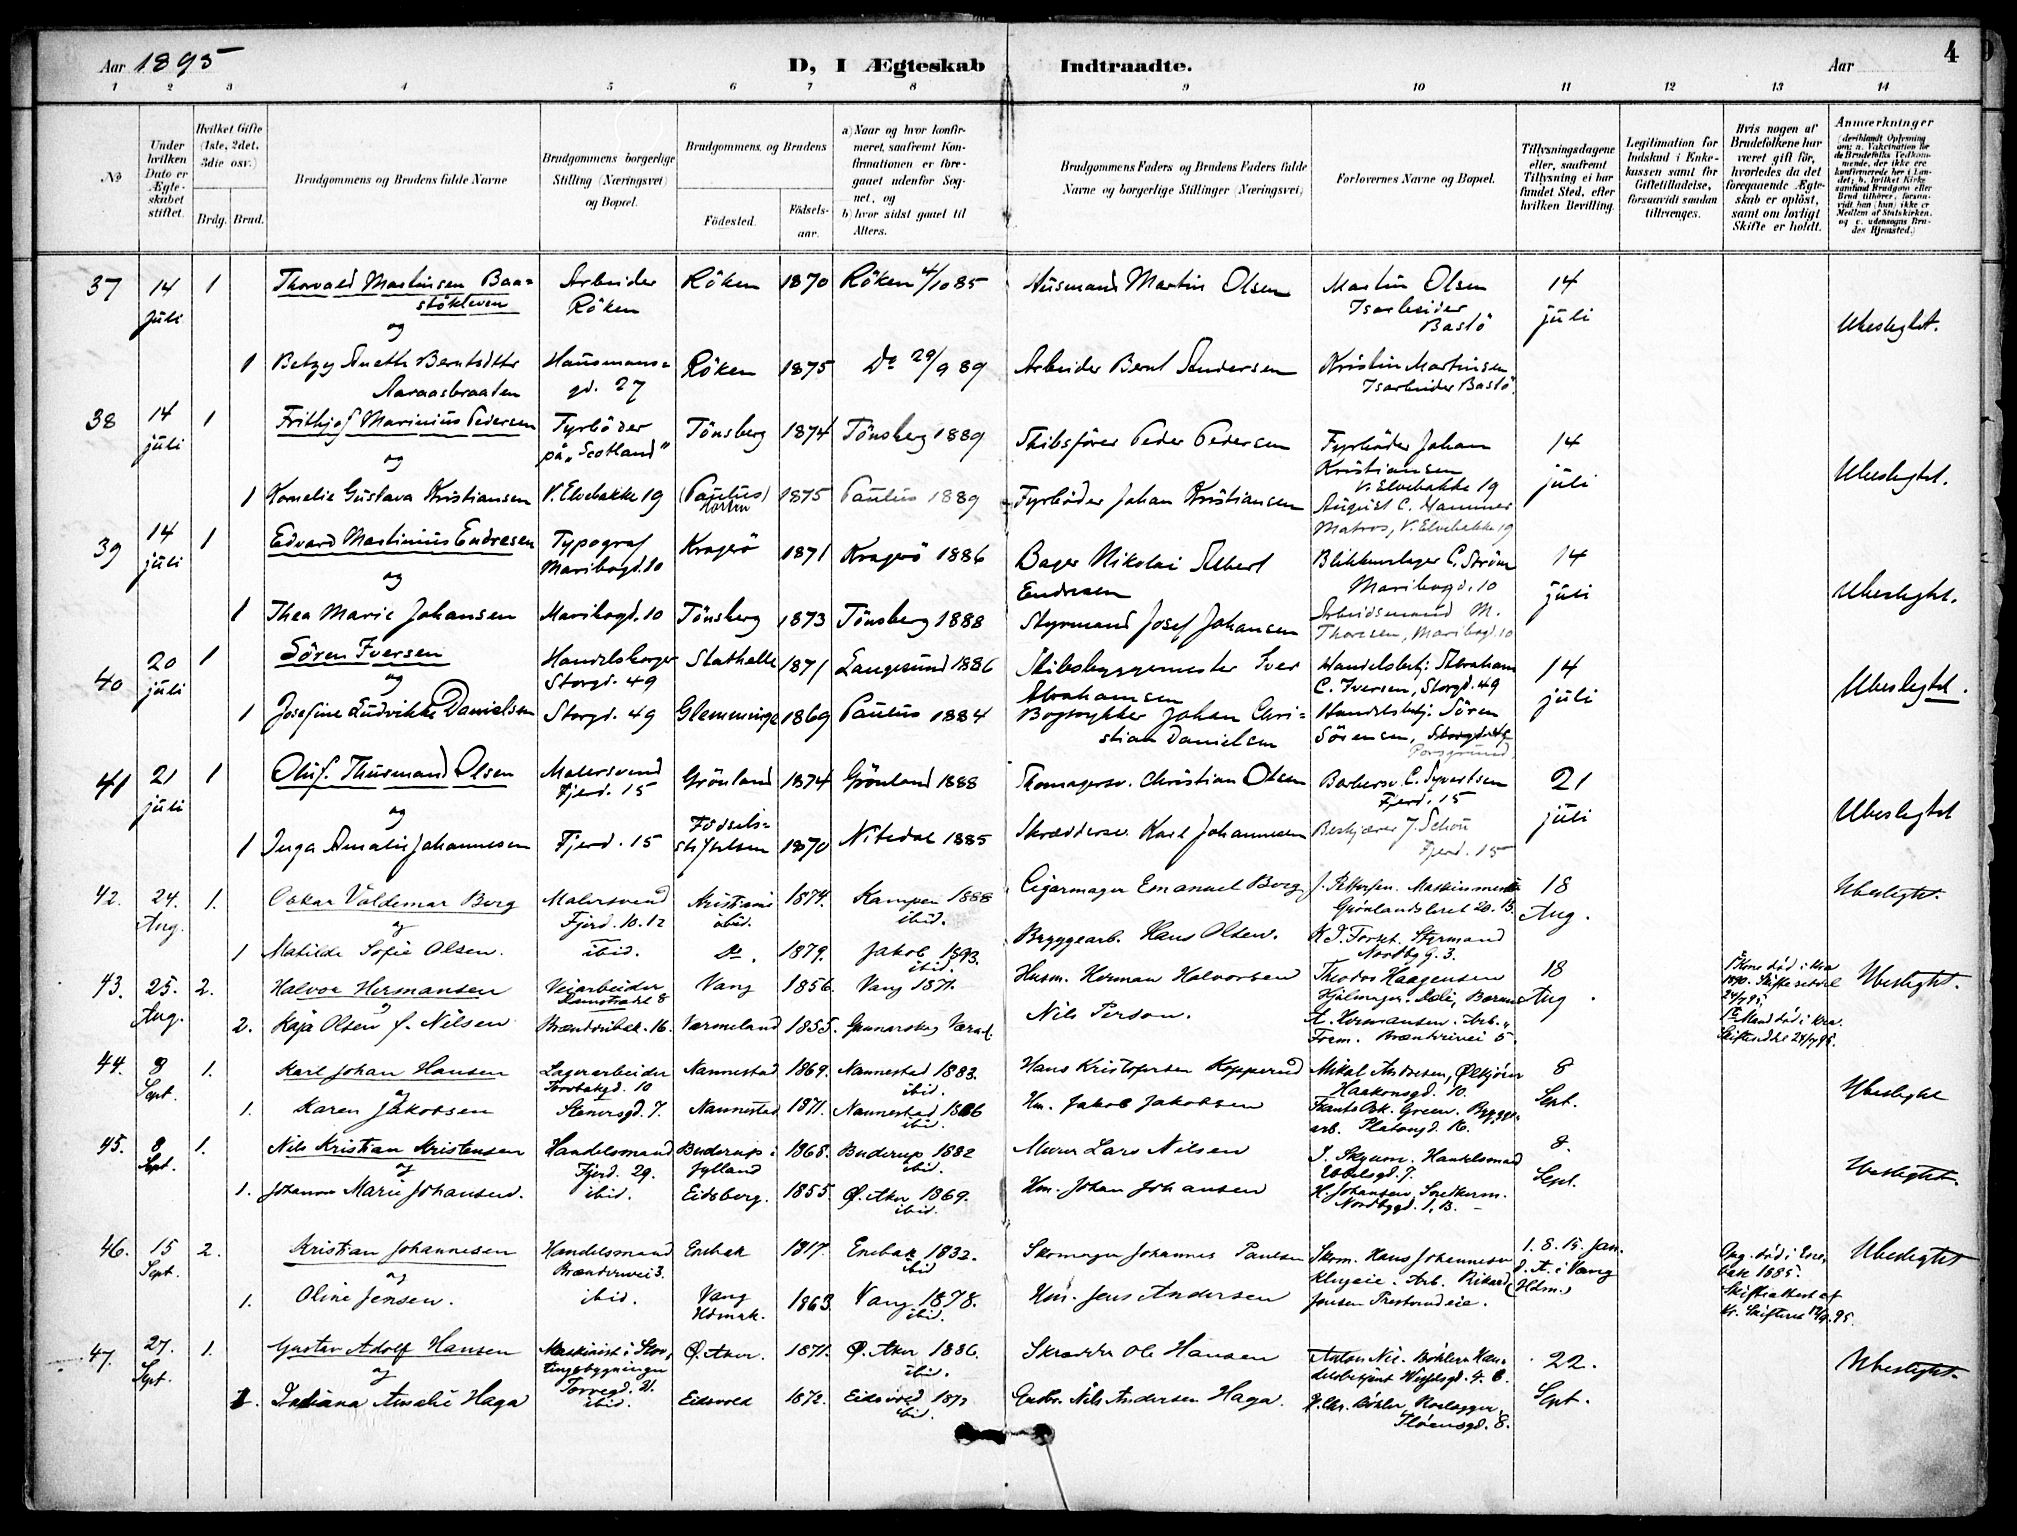 Aar 1895
D, I Ægteskab Indtraadte.
Aar
4
1 2 3 4 5 6 7 8 9 10 11 12 13 14
No
Under hvilken Dato er Ægteskabet stiftet.
Hvilket Gifte (1ste, 2det, 3die osv.)
Brdg. Brud.
Brudgommens og Brudens fulde Navne
Brudgommens borgerlige Stilling (Næringsvei) og Bopæl.
Brudgommens og Brudens
Födested.
Födselsaar.
a) Naar og hvor konfirmeret, saafremt Konfirmationen er foregaaet udenfor Sognet, og
b) hvor sidst gaaet til Alters.
Brudgommens Faders og Brudens Faders fulde Navne og borgerlige Stillinger (Næringsvei)
Forlovernes Navne og Bopæl.
Tillysningsdagene eller, saafremt Tillysning ei har fundet Sted, efter hvilken Bevilling.
Legitimation for Indskud i Enkekassen samt for Giftetilladelse, forsaavidt saadan tiltrænges.
Hvis nogen af Brudefolkene har været gift før, hvorledes da det foregaaende Ægteskab er opløst, samt om lovligt Skifte er holdt.
Anmærkninger
(deriblandt Oplysning om: a. Vakcination for de Brudefolks Vedkommende, der ikke ere konfirmerede her i Landet; b. hvilket Kirkesamfund Brudgom eller Brud tilhører, forsaavidt han (hun) ikke er Medlem af Statskirken, og c. udensogns Brudes Hjemsted.)
37 14 juli 1 Thorvald Martinsen Baastökleven Arbeider Röken Röken 1870 Röken 4/10 85 Husmand Martin Olsen Martin Olsen Isarbeider Bastö 14 juli Ubeslegtet.
og
1 Betzy Anette Berntsdttr Aaraasbraaten Hausmansgd. 27 Röken 1875 Do 29/9 89 Arbeider Bernt Andersen Kristin Martinsen Isarbeider Bastö
38 14 juli 1 Frithjof Marinius Pedersen Fyrböder på „Scotland” Tönsberg 1874 Tönsberg 1889 Skibsförer Peder Pedersen Fyrböder Johan Kristiansen V. Elvebakke 19 14 juli Ubeslegtet.
og
1 Kornelie Gustava Kristiansen V. Elvebakke 19 (Paulus) Horten 1875 Paulus 1889 Fyrböder Johan Kristiansen August C. Hammer Matros, V. Elvebakke 19
39 14 juli 1 Edvard Martinius Endresen Typograf Maribogd. 10 Kragerö 1871 Kragerö 1886 Bager Nikolai Albert Endresen Blikkenslager C. Ström Maribogd. 10 14 juli Ubeslegtet.
og
1 Thea Marie Johansen Maribogd. 10 Tönsberg 1873 Tönsberg 1888 Styrmand Josef Johansen Arbeidsmand M. Thoresen, Maribogd. 10
40 20 juli 1 Sören Iversen Handelsborger Storgd. 49 Stathelle 1871 Langesund 1886 Skibsbyggemester Iver Abrahamsen Handelsbetj. Abraham C. Iversen, Storgd. 49 14 juli Ubeslegtet.
og
1 Josefine Ludvikke Danielsen Storgd. 49 Glemminge 1869 Paulus 1884 Bogtrykker Johan Christian Danielsen Handelsbetj. Sören Sörensen, Porsgrund
41 21 juli 1 Oluf Thusmand Olsen Malersvend Fjerd. 15 Grönland 1874 Grönland 1888 Skomagersv. Christian Olsen Barbersv. C. Syvertsen Fjerd. 15 21 juli Ubeslegtet
og
1 Inga Amalie Johannesen Fjerd. 15 Födselsstiftelsen 1870 Nitedal 1885 Skræddersv. Karl Johannesen Beskjærer J. Schou Fjerd. 15
42. 24. Aug. 1. Oskar Valdemar Berg Malersvend Fjerd. 10.12 Kristiania ibid. 1874. Kampen 1888 ibid. Cigarmager Emanuel Berg J. Pettersen. Maskinmester Grønlandsleret 20. B. 18 Aug. Ubeslegtet.
og
1 Matilde Sofie Olsen. ibid. Do. 1879. Jakob 1893. ibid. Bryggearb. Hans Olsen. K. J. Forset. Styrmand Nordbyg. 3.
43. 25. Aug. 2. Halvor Hermansen Veiarbeider Vang 1856. Vang 1871. Husm. Herman Halvorsen Theodor Haagensen 18 Aug. Ubeslegtet.
og
2. Kaja Olsen f. Nilsen Brænderibak. 16. Værmeland 1855. Gunnarskog Værml. Nils Person. A. Hermansen. Arb. Brænderivei 5.
44. 8 Sept. 1. Karl Johan Hansen Lagerarbeider Nannestad 1869. Nannestad 1883. ibid. Hans Kristofersen Kopperud Mikal Andresen, Ølkjører Haakonsgd. 10. 8 Sept. Ubeslegtet
og
1. Karen Jakobsen Stenersgd. 7. Nannestad 1871. Nannestad 1886 ibid. Hm. Jakob Jakobsen Frants Osk. Green. Bryggearb. Platousgd. 16.
45. 8 Sept. 1. Nils Kristian Kristensen Handelsmand Fjerd. 29. Buderup i Jylland 1868. Buderup 1882 ibid. Murer Lars Nilsen J. Skyum. Handelsmand 8. Sept. Ubeslegtet.
og
1. Johanne Marie Johansen. ibid. Eidsberg. 1855. Ø. Aker 1869. ibid. Hm. Johan Johansen H. Johansen, Snedkerm. Nordbygd. 1, B.
46. 15 Sept. 2. Kristian Johannesen Handelsmand Brænderivei 3. Enebak 1817. Enebak 1832. ibid Skomager Johannes Paulsen Skom. Hans Johannesen 1. 8. 15. Ubeslegtet
og
1. Oline Jensen. ibid. Vang Hdmark. 1863. Vang 1878. ibid. Hm. Jens Andersen
47. 27. Sept. 1. Gustav Adolf Hansen Maskinist i Stortingsbygningen Torvegd. Ø. Aker. 1871. Ø. Aker 1886. ibid. Skrædder Ole Hansen 22. Sept. Ubeslegtet.
og
1. Indiana Amalie Haga ibid. Eidsvold 1872. Eidsvold ibid. Gaardbr. Nils Andersen Haga.